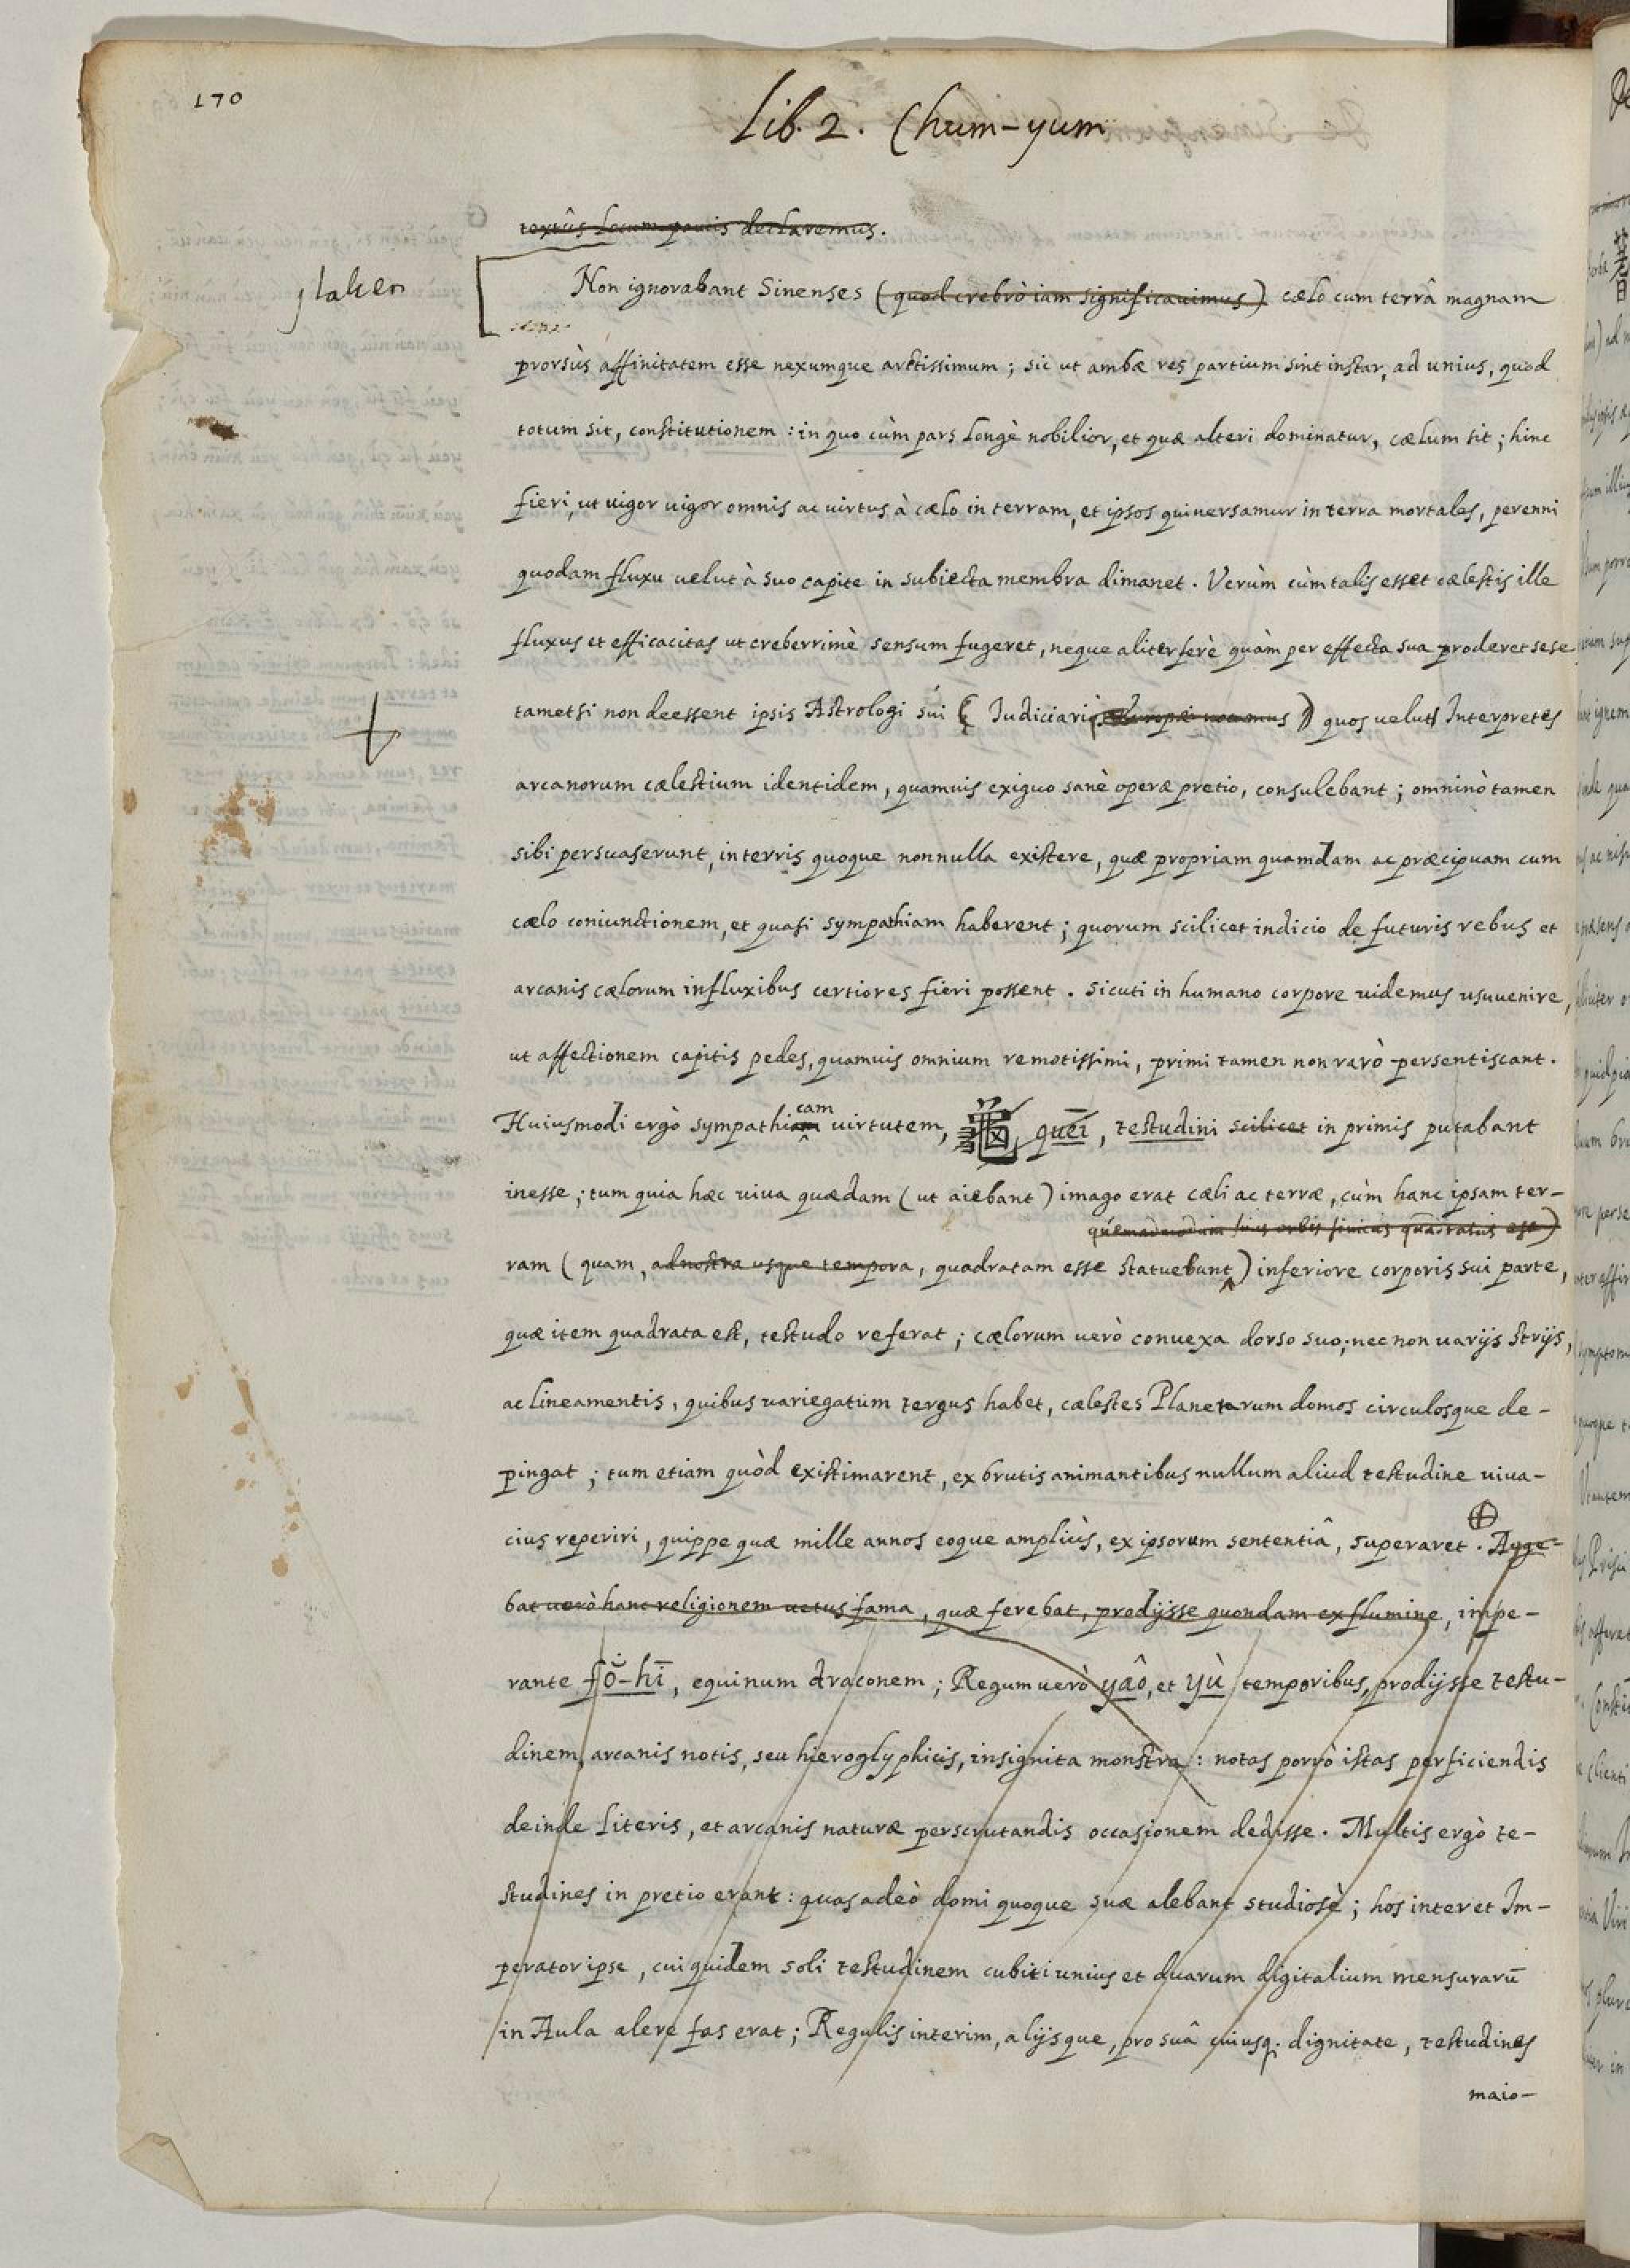 170
Lib. 2. Chum-yum
textûs locum paucis declaremus.
Non ignorabant Sinenses (quod crebrò iam significauimus) cælo cum terrâ magnam
prorsùs affinitatem esse nexumque arctissimum; sic ut ambæ res partium sint instar, ad unius, quod
totum sit, constitutionem: in quo cùm pars longè nobilior, et quæ alteri dominatur, cælum sit; hinc
fieri, ut uigor uigor omnis ac uirtus à cælo in terram, et ipsos qui uersamur in terra mortales, perenni
quodam fluxu uelut à suo capite in subiecta membra dimanet. Verùm cùm talis esset cælestis ille
fluxus et efficacitas ut creberrimè sensum fugeret, neque aliter ferè quàm per effecta sua proderet sese
tametsi non deessent ipsis Astrologi sui (Iudiciarij Europæi uocamus) quos uelut Interpretes
arcanorum cælestium identidem, quamuis exiguo sanè operæ pretio, consulebant; omninò tamen
sibi persuaserunt, in terris quoque nonnulla existere, quæ propriam quamdam ac præcipuam cum
cælo coniunctionem, et quasi sympathiam haberent; quorum scilicet indicio de futuris rebus et
arcanis cælorum influxibus certiores fieri possent. Sicuti in humano corpore uidemus usuuenire,
ut affectionem capitis pedes, quamuis omnium remotissimi, primi tamen non rarò persentiscant.
cam
Huiusmodi ergò sympathiam uirtutem, 龜, queī, testudini scilicet in primis putabant
inesse; tum quia hæc uiua quædam (ut aiebant) imago erat cæli ac terræ, cùm hanc ipsam ter-
quemadmodum suus orbis sinicus quadratus est)
ram (quam, ad nostra usque tempora, quadratam esse statuebunt) inferiore corporis sui parte,
quæ item quadrata est, testudo referat; cælorum uerò conuexa dorso suo; nec non uarijs strijs,
ac lineamentis, quibus uariegatum tergus habet, cælestes Planetarum domos circulosque de-
pingat; tum etiam quòd existimarent, ex brutis animantibus nullum aliud testudine uiua-
cius reperiri, quippe quæ mille annos eoque ampliùs, ex ipsorum sententiâ, superaret. Auge-
bat uerò hanc religionem uetus fama, quæ ferebat, prodijsse quondam ex flumine, impe-
rante fŏ-hī, equinum draconem; Regum uerò yâo, et yù temporibus, prodijsse testu-
dinem, arcanis notis, seu hieroglyphicis, insignita monstra: notas porrò istas perficiendis
deinde literis, et arcanis naturæ perscrutandis occasionem dedisse. Multis ergò te-
studines in pretio erant: quas adeò domi quoque suæ alebant studiosè; hos inter et Im-
perator ipse, cui quidem soli testudinem cubiti unius et duarum digitalium mensurarū
in Aula alere fas erat; Regulis interim, alijsque, pro suâ cuiusq. dignitate, testudines
maio-